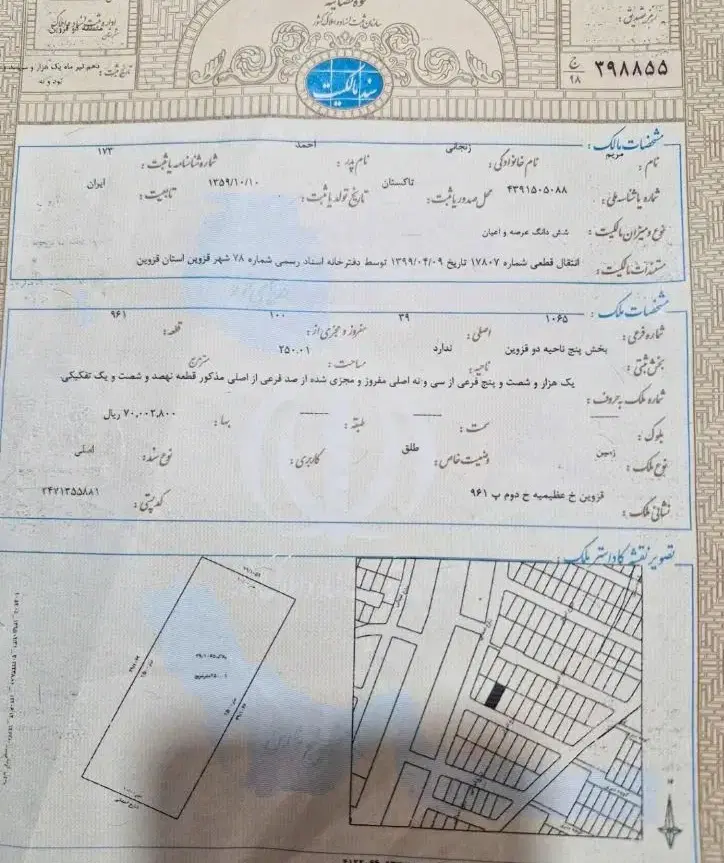 قوه قضاییه
سازمان ثبت اسناد و املاک کشور
منطقه دو قزوین
تاریخ ثبت: دهم تیر ماه یک هزار و سیصد و
نود و نه
سند مالکیت
ج ۹۸ ۳۹۸۸۵۵
مشخصات مالک:
نام: مریم نام خانوادگی: زنجانی نام پدر: احمد شماره شناسنامه یا ثبت: ۱۷۳
شماره یا شناسه ملی: ۴۳۹۱۵۰۵۰۸۸ محل صدور یا ثبت: تاکستان تاریخ تولد یا ثبت: ۱۳۵۹/۱۰/۱۰ تابعیت: ایران
نوع و میزان مالکیت: شش دانگ عرصه و اعیان
مستندات مالکیت: انتقال قطعی شماره ۱۷۸۰۷ تاریخ ۱۳۹۹/۰۴/۰۹ توسط دفترخانه اسناد رسمی شماره ۷۸ شهر قزوین استان قزوین
مشخصات ملک:
شماره فرعی: ۱۰۶۵ اصلی: ۳۹ مفروز و مجزی از: ۱۰۰ قطعه: ۹۶۱
بخش ثبتی: بخش پنج ناحیه دو قزوین ناحیه: ندارد مساحت: ۲۵۰.۰۱ مترمربع
شماره ملک به حروف: یک هزار و شصت و پنج فرعی از سی و نه اصلی مفروز و مجزی شده از صد فرعی از اصلی مذکور قطعه نهصد و شصت و یک تفکیکی
بلوک: سمت: طبقه: بها: ۷۰,۰۰۲,۸۰۰ ریال
نوع ملک: زمین وضعیت خاص: طلق کاربری: نوع سند: اصلی
نشانی ملک: قزوین خ عظیمیه ح دوم پ ۹۶۱ کد پستی: ۳۴۷۱۳۵۵۸۸۱
تصویر نقشه کاداستر ملک: